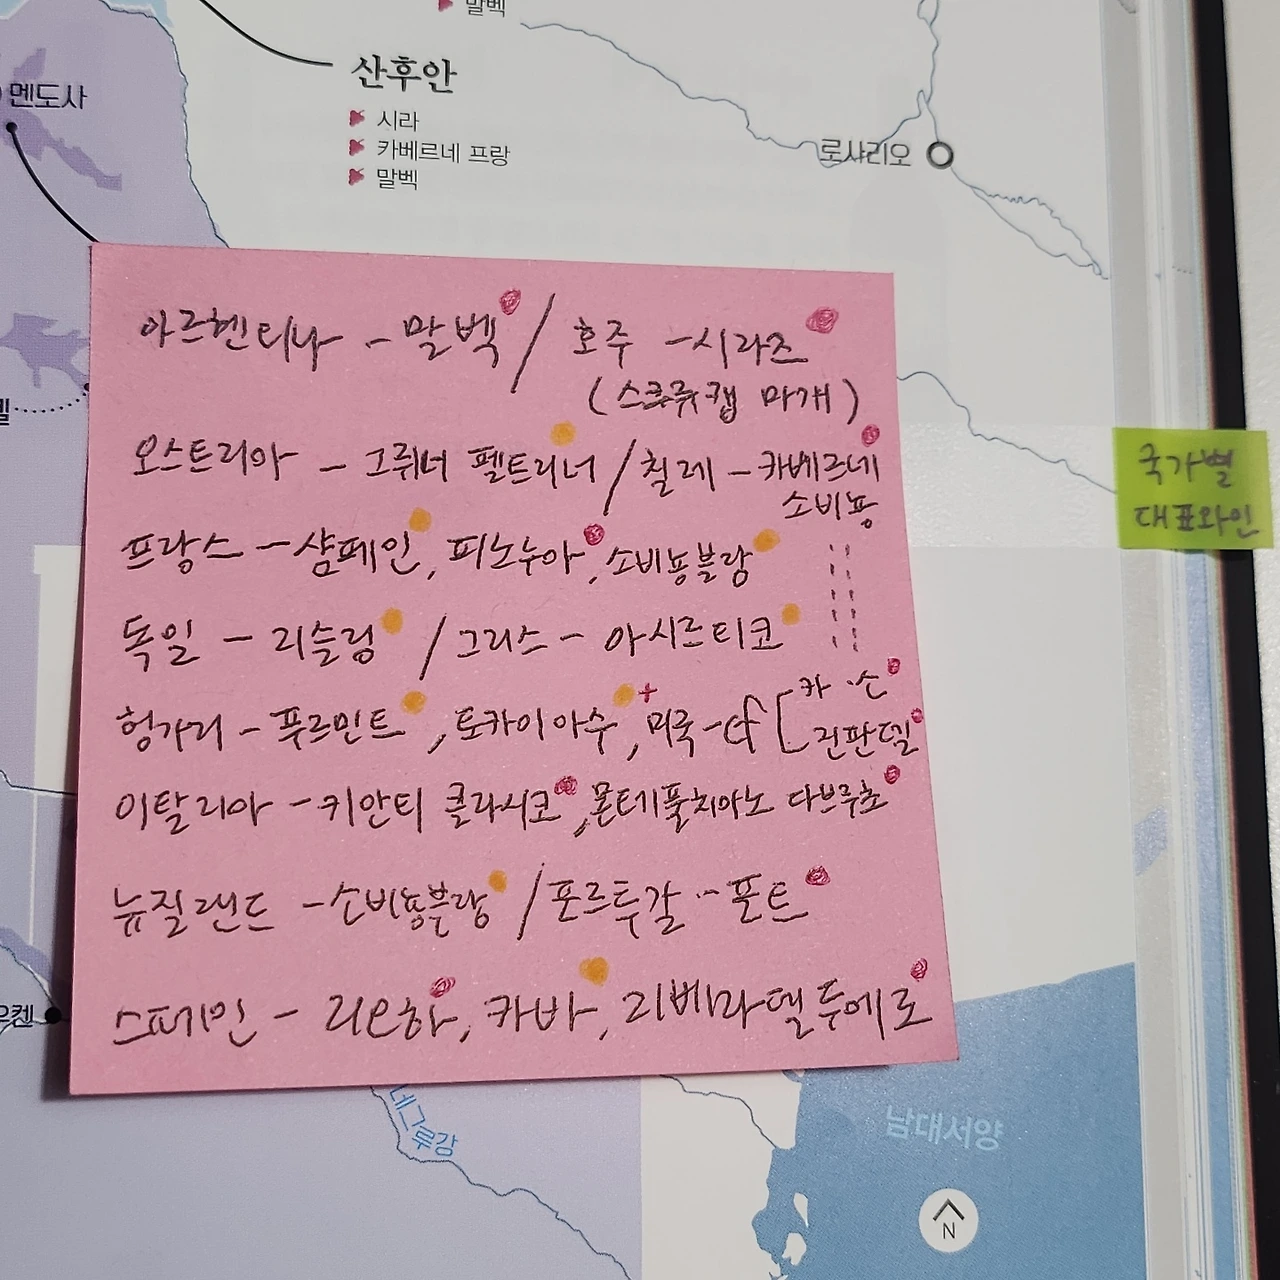 말벡
산후안
멘도사
시라
카베르네 프랑
말벡
로사리오
아르헨티나 - 말벡 / 호주 - 시라즈
(스크류캡 마개)
오스트리아 - 그뤼너 펠트리너 / 칠레 - 카베르네
소비뇽
프랑스 - 샴페인, 피노누아, 소비뇽블랑
독일 - 리슬링 / 그리스 - 아시르티코
헝가리 - 푸르민트, 토카이아수, 미국 - cf [ 카·소
진판델
이탈리아 - 키안티 클라시코, 몬테풀치아노 다브루초
뉴질랜드 - 소비뇽블랑 / 포르투갈 - 포트
스페인 - 리오하, 카바, 리베라델두에로
국가별
대표와인
우켄
네그루강
남대서양
N